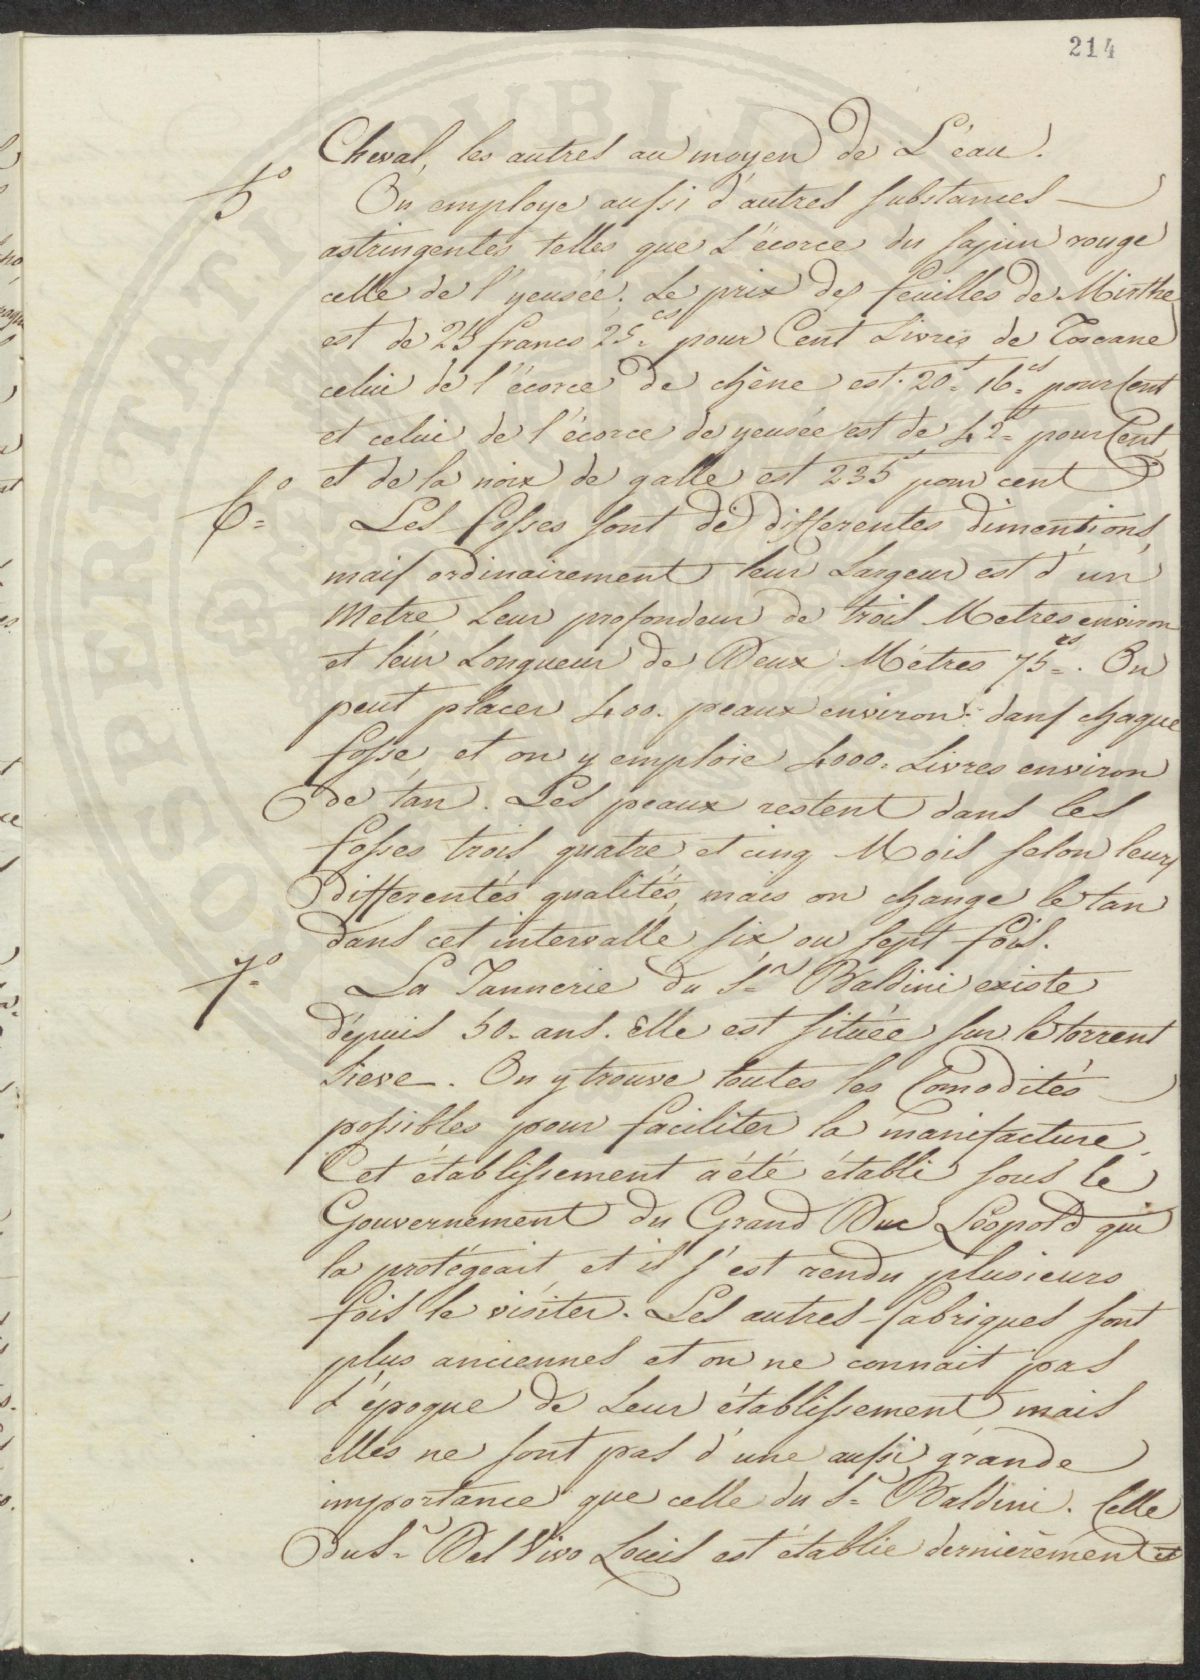 214
Cheval, les autres au moyen de L'eau.
5° On employe aussi d'autres substances
astringentes telles que L'écorce du sapin rouge
celle de l'yeusée. Le prix des feuilles de Mirthe
est de 25 francs 25 cs pour Cent Livres de Toscane
celui de l'écorce de chêne est 20 f 16 cs pour Cent
et celui de l'écorce de yeusée est de 42 f pour Cent,
et de la noix de galle est 235 f pour cent
6° Les fosses sont de differentes dimentions,
mais ordinairement leur Largeur est d'un
Metre Leur profondeur de trois Metres environ
et leur Longueur de Deux Métres 75 cs. On
peut placer 400. peaux environ dans chaque
fosse, et on y emploie 4000. Livres environ
de tan. Les peaux restent dans les
fosses trois quatre et cinq Mois selon leurs
differentes qualités, mais on change le tan
dans cet intervalle six ou sept fois.
7° La Tannerie du Sr Baldini existe
dépuis 50. ans. Elle est située sur le torrent
Sieve. On y trouve toutes les Comodités
possibles pour faciliter la manifacture.
Cet établissement a été établi sous le
Gouvernement du Grand Duc Léopold qui
la protégeait et il s'est rendu plusieurs
fois le visiter. Les autres fabriques sont
plus anciennes et on ne connait pas
L'époque de Leur établissement mais
elles ne sont pas d'une aussi grande
importance que celle du Sr Baldini. Celle
du Sr Del Vivo Louis est établie dernièrement et
SOSPERITATI PUBLI